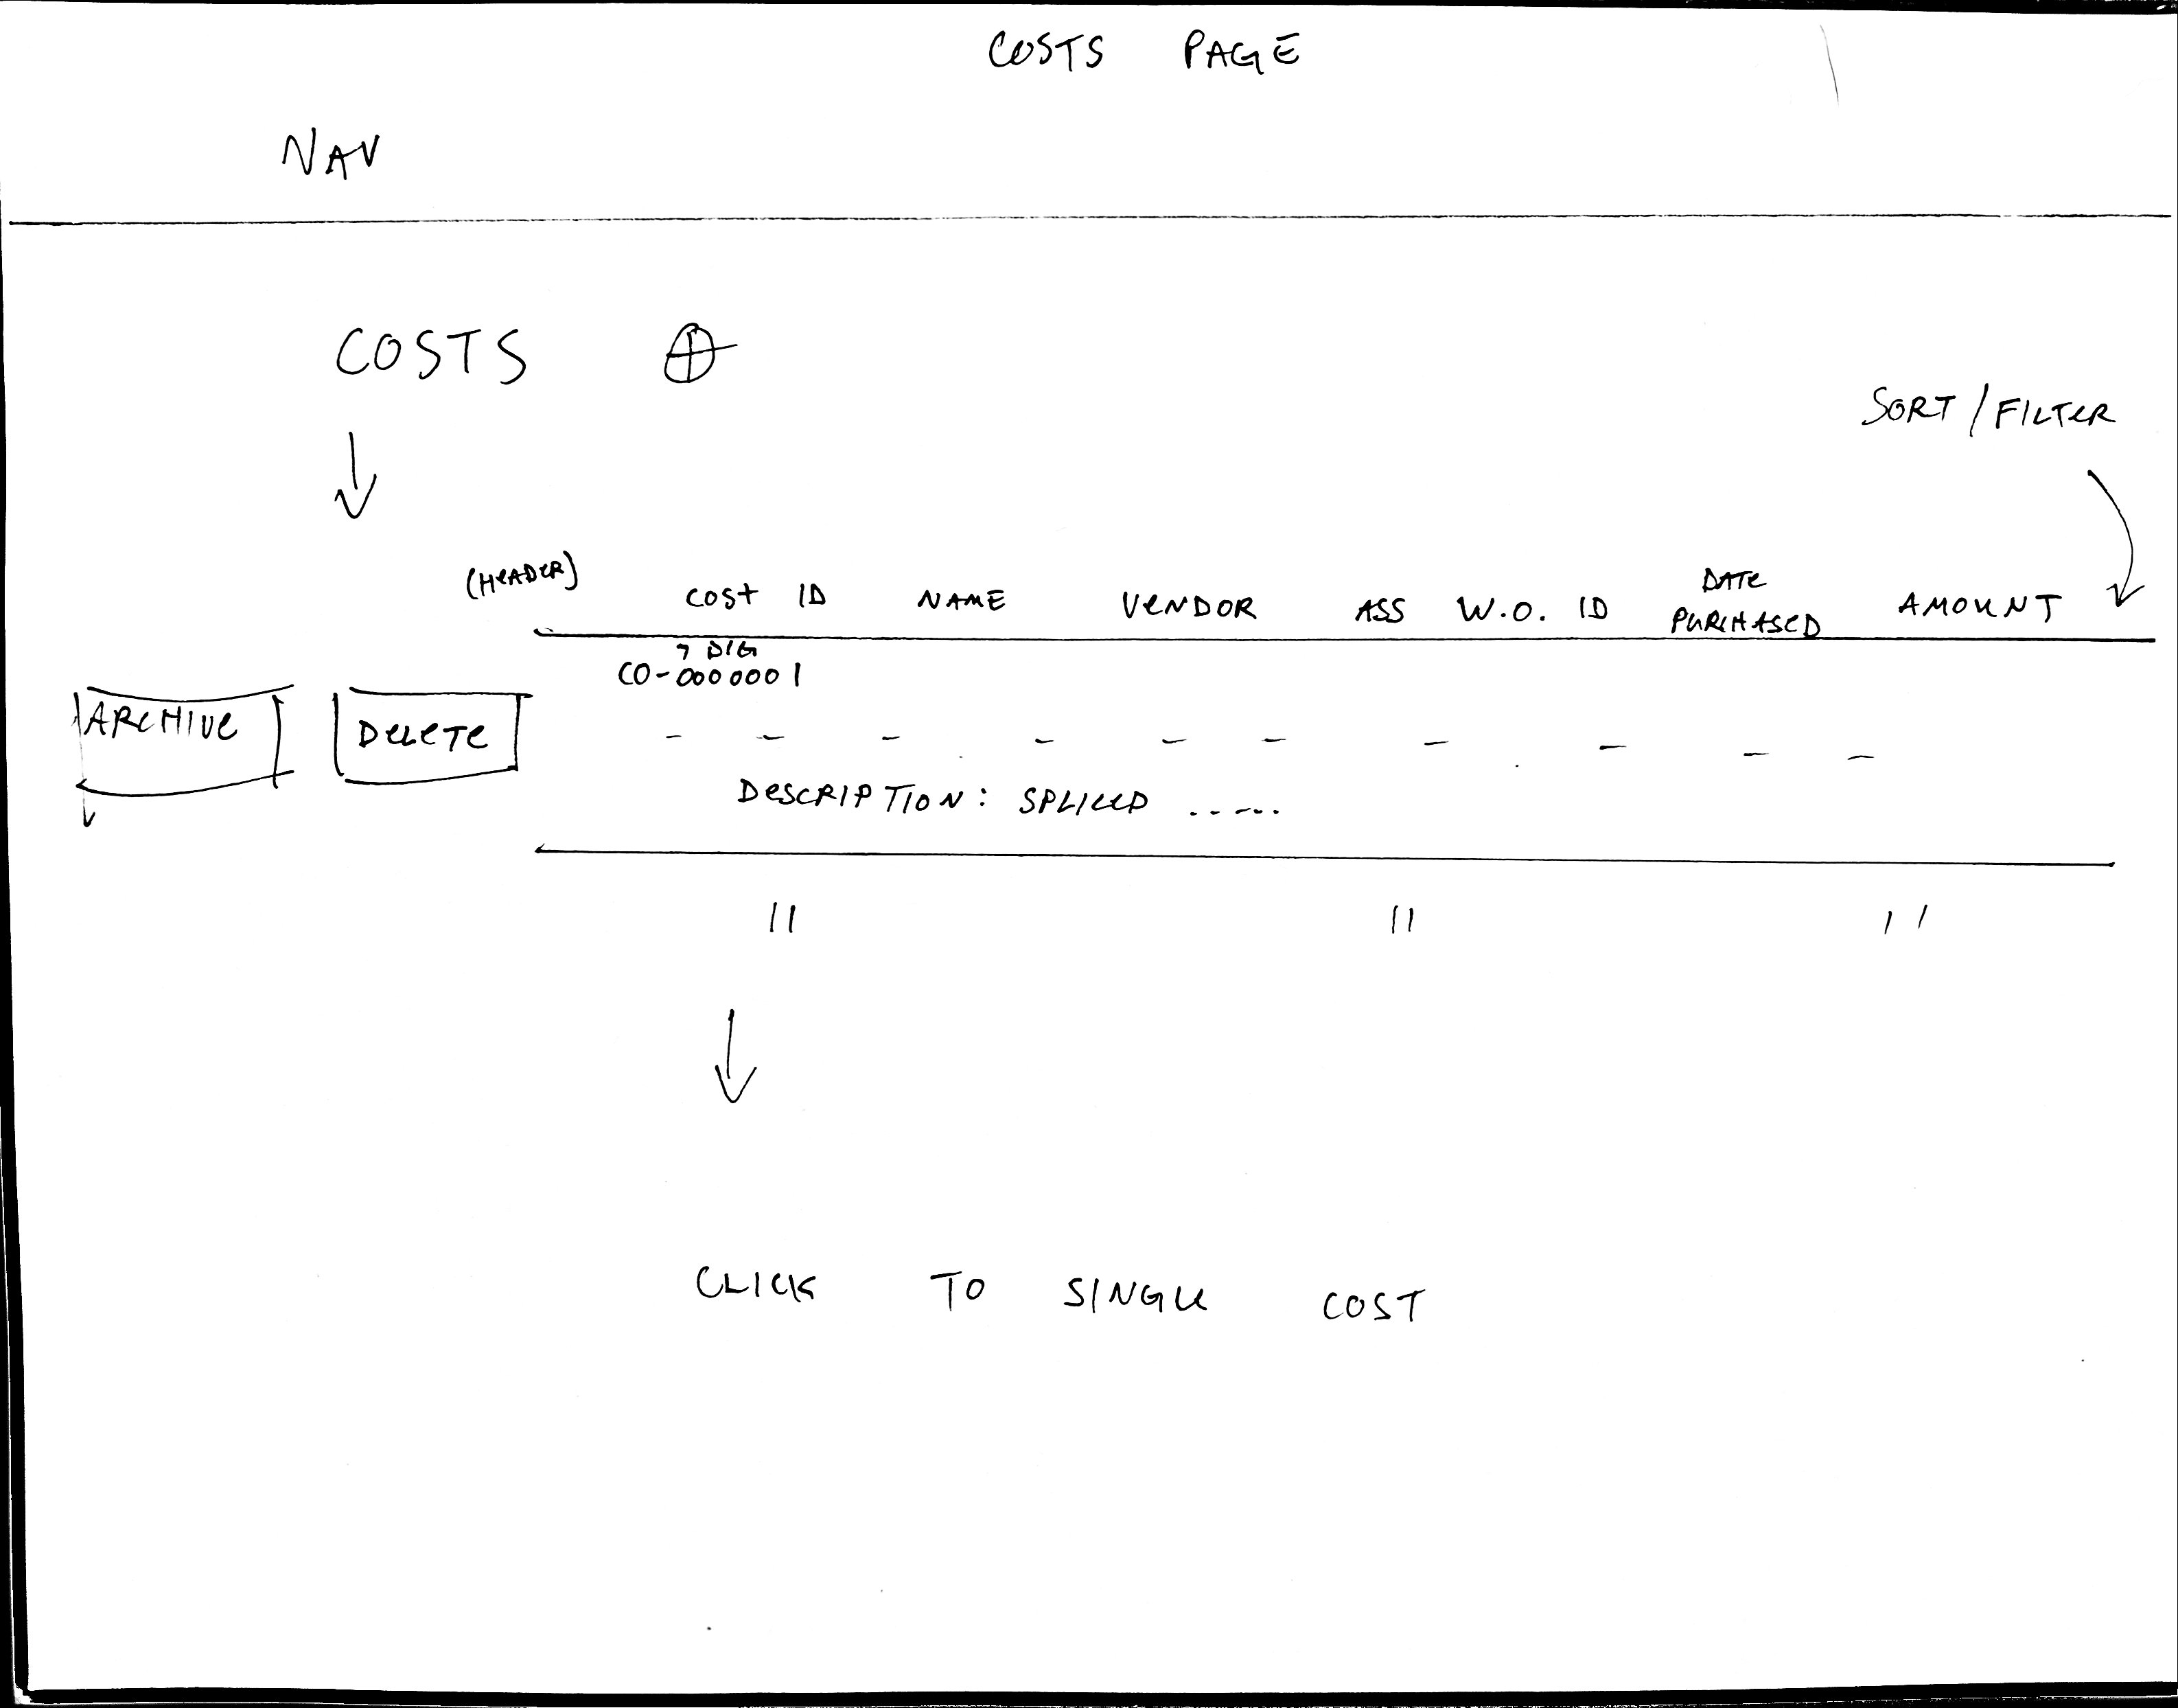 COSTS PAGE
NAV
COSTS
SORT / FILTER
(HEADER)
COST ID NAME VENDOR ASS W.O. ID DATE PURCHASED AMOUNT
7 DIG
CO-0000001
ARCHIVE DELETE
- - - - - - - - - -
DESCRIPTION: SPLICED .....
11 11 11
CLICK TO SINGLE COST